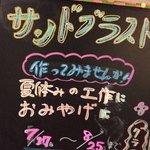 サンドブラスト
作ってみませんか
夏休みの工作に
おみやげに
～ 8/25